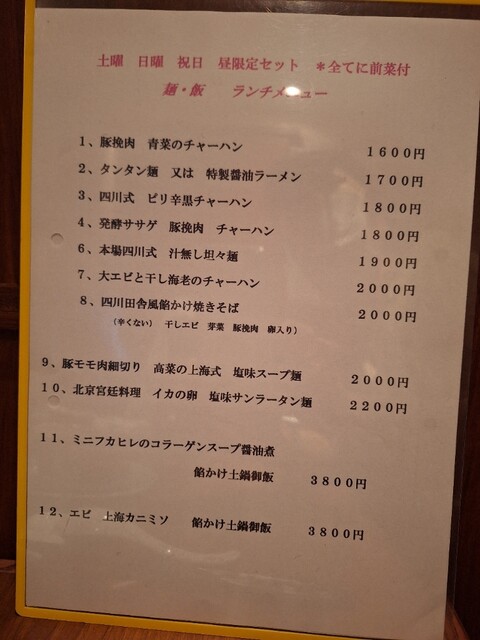 土曜 日曜 祝日 昼限定セット ＊全てに前菜付
麺・飯 ランチメニュー
１、豚挽肉 青菜のチャーハン １６００円
２、タンタン麺 又は 特製醤油ラーメン １７００円
３、四川式 ピリ辛黒チャーハン １８００円
４、発酵ササゲ 豚挽肉 チャーハン １８００円
６、本場四川式 汁無し坦々麺 １９００円
７、大エビと干し海老のチャーハン ２０００円
８、四川田舎風餡かけ焼きそば ２０００円
（辛くない） 干しエビ 芽菜 豚挽肉 卵入り）
９、豚モモ肉細切り 高菜の上海式 塩味スープ麺 ２０００円
１０、北京宮廷料理 イカの卵 塩味サンラータン麺 ２２００円
１１、ミニフカヒレのコラーゲンスープ醤油煮
餡かけ土鍋御飯 ３８００円
１２、エビ 上海カニミソ 餡かけ土鍋御飯 ３８００円